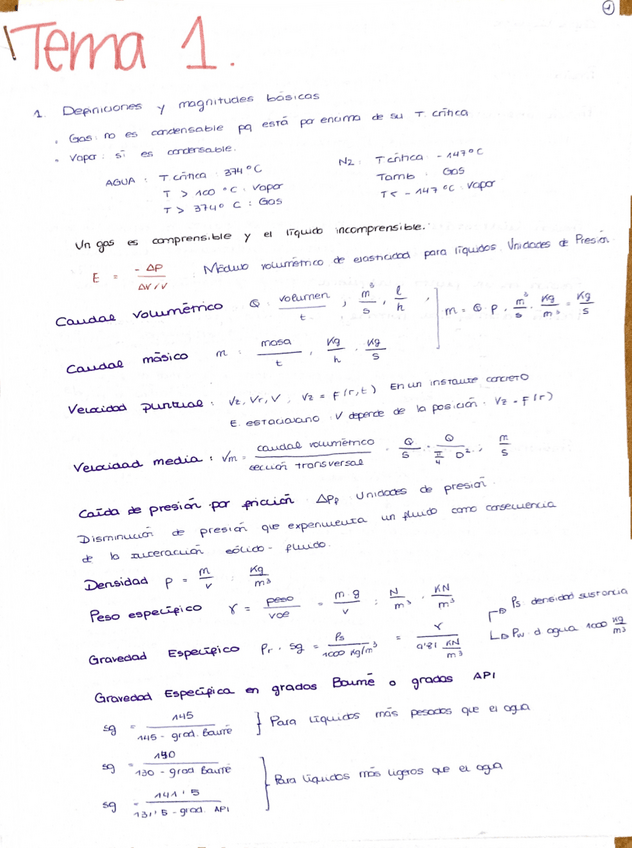 1
Tema 1.
1. Definiciones y magnitudes básicas
. Gas: no es condensable pq está por encima de su T. crítica
. Vapor: sí es condensable.
AGUA: T crítica: 374ºC
T > 100 ºC: Vapor
T > 374º C: Gas
N2: T crítica - 147ºC
Tamb: Gas
T < - 147 ºC: Vapor
Un gas es comprensible y el líquido incomprensible.
E = - ΔP / ΔV/V. Módulo volumétrico de elasticidad para líquidos. Unidades de Presión
Caudal volumétrico Q: volumen / t, m³ / s, l / h, m = Q · ρ, m³ / s · Kg / m³ = Kg / s
Caudal másico m: masa / t, Kg / h, Kg / s
Velocidad puntual: Vz, Vr, V, Vz = F(r,t) En un instante concreto
E. estacionario: V depende de la posición. Vz = F(r)
Velocidad media: Vm = caudal volumétrico / sección transversal = Q / S = Q / π/4 · D², m / s
Caída de presión por fricción ΔPf. Unidades de presión.
Disminución de presión que experimenta un fluido como consecuencia
de la interacción sólido - fluido.
Densidad ρ = m / v : Kg / m³
Peso específico γ = peso / voe = m · g / v : N / m³, KN / m³
Gravedad Específica ρr · sg = ρs / 1000 Kg/m³ = γ / 9'81 KN / m³
ρs densidad sustancia
ρw d agua 1000 kg / m³
Gravedad Específica en grados Baumé o grados API
sg = 145 / 145 - grad. Baumé } Para líquidos más pesados que el agua
sg = 140 / 130 - grad Baumé
} Para líquidos más ligeros que el agua
sg = 141'5 / 131'5 - grad. API